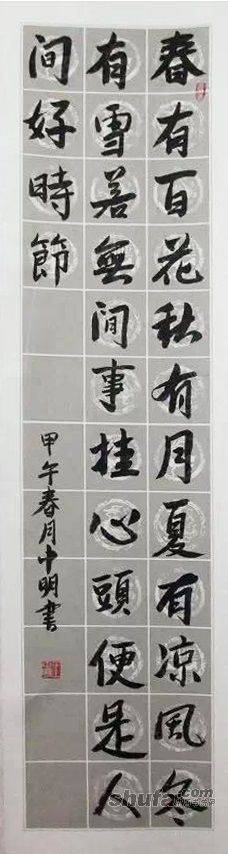 春有百花秋有月夏有凉風冬
有雪若無间事挂心頭便是人
间好時節
甲午春月中明書
shufa.com